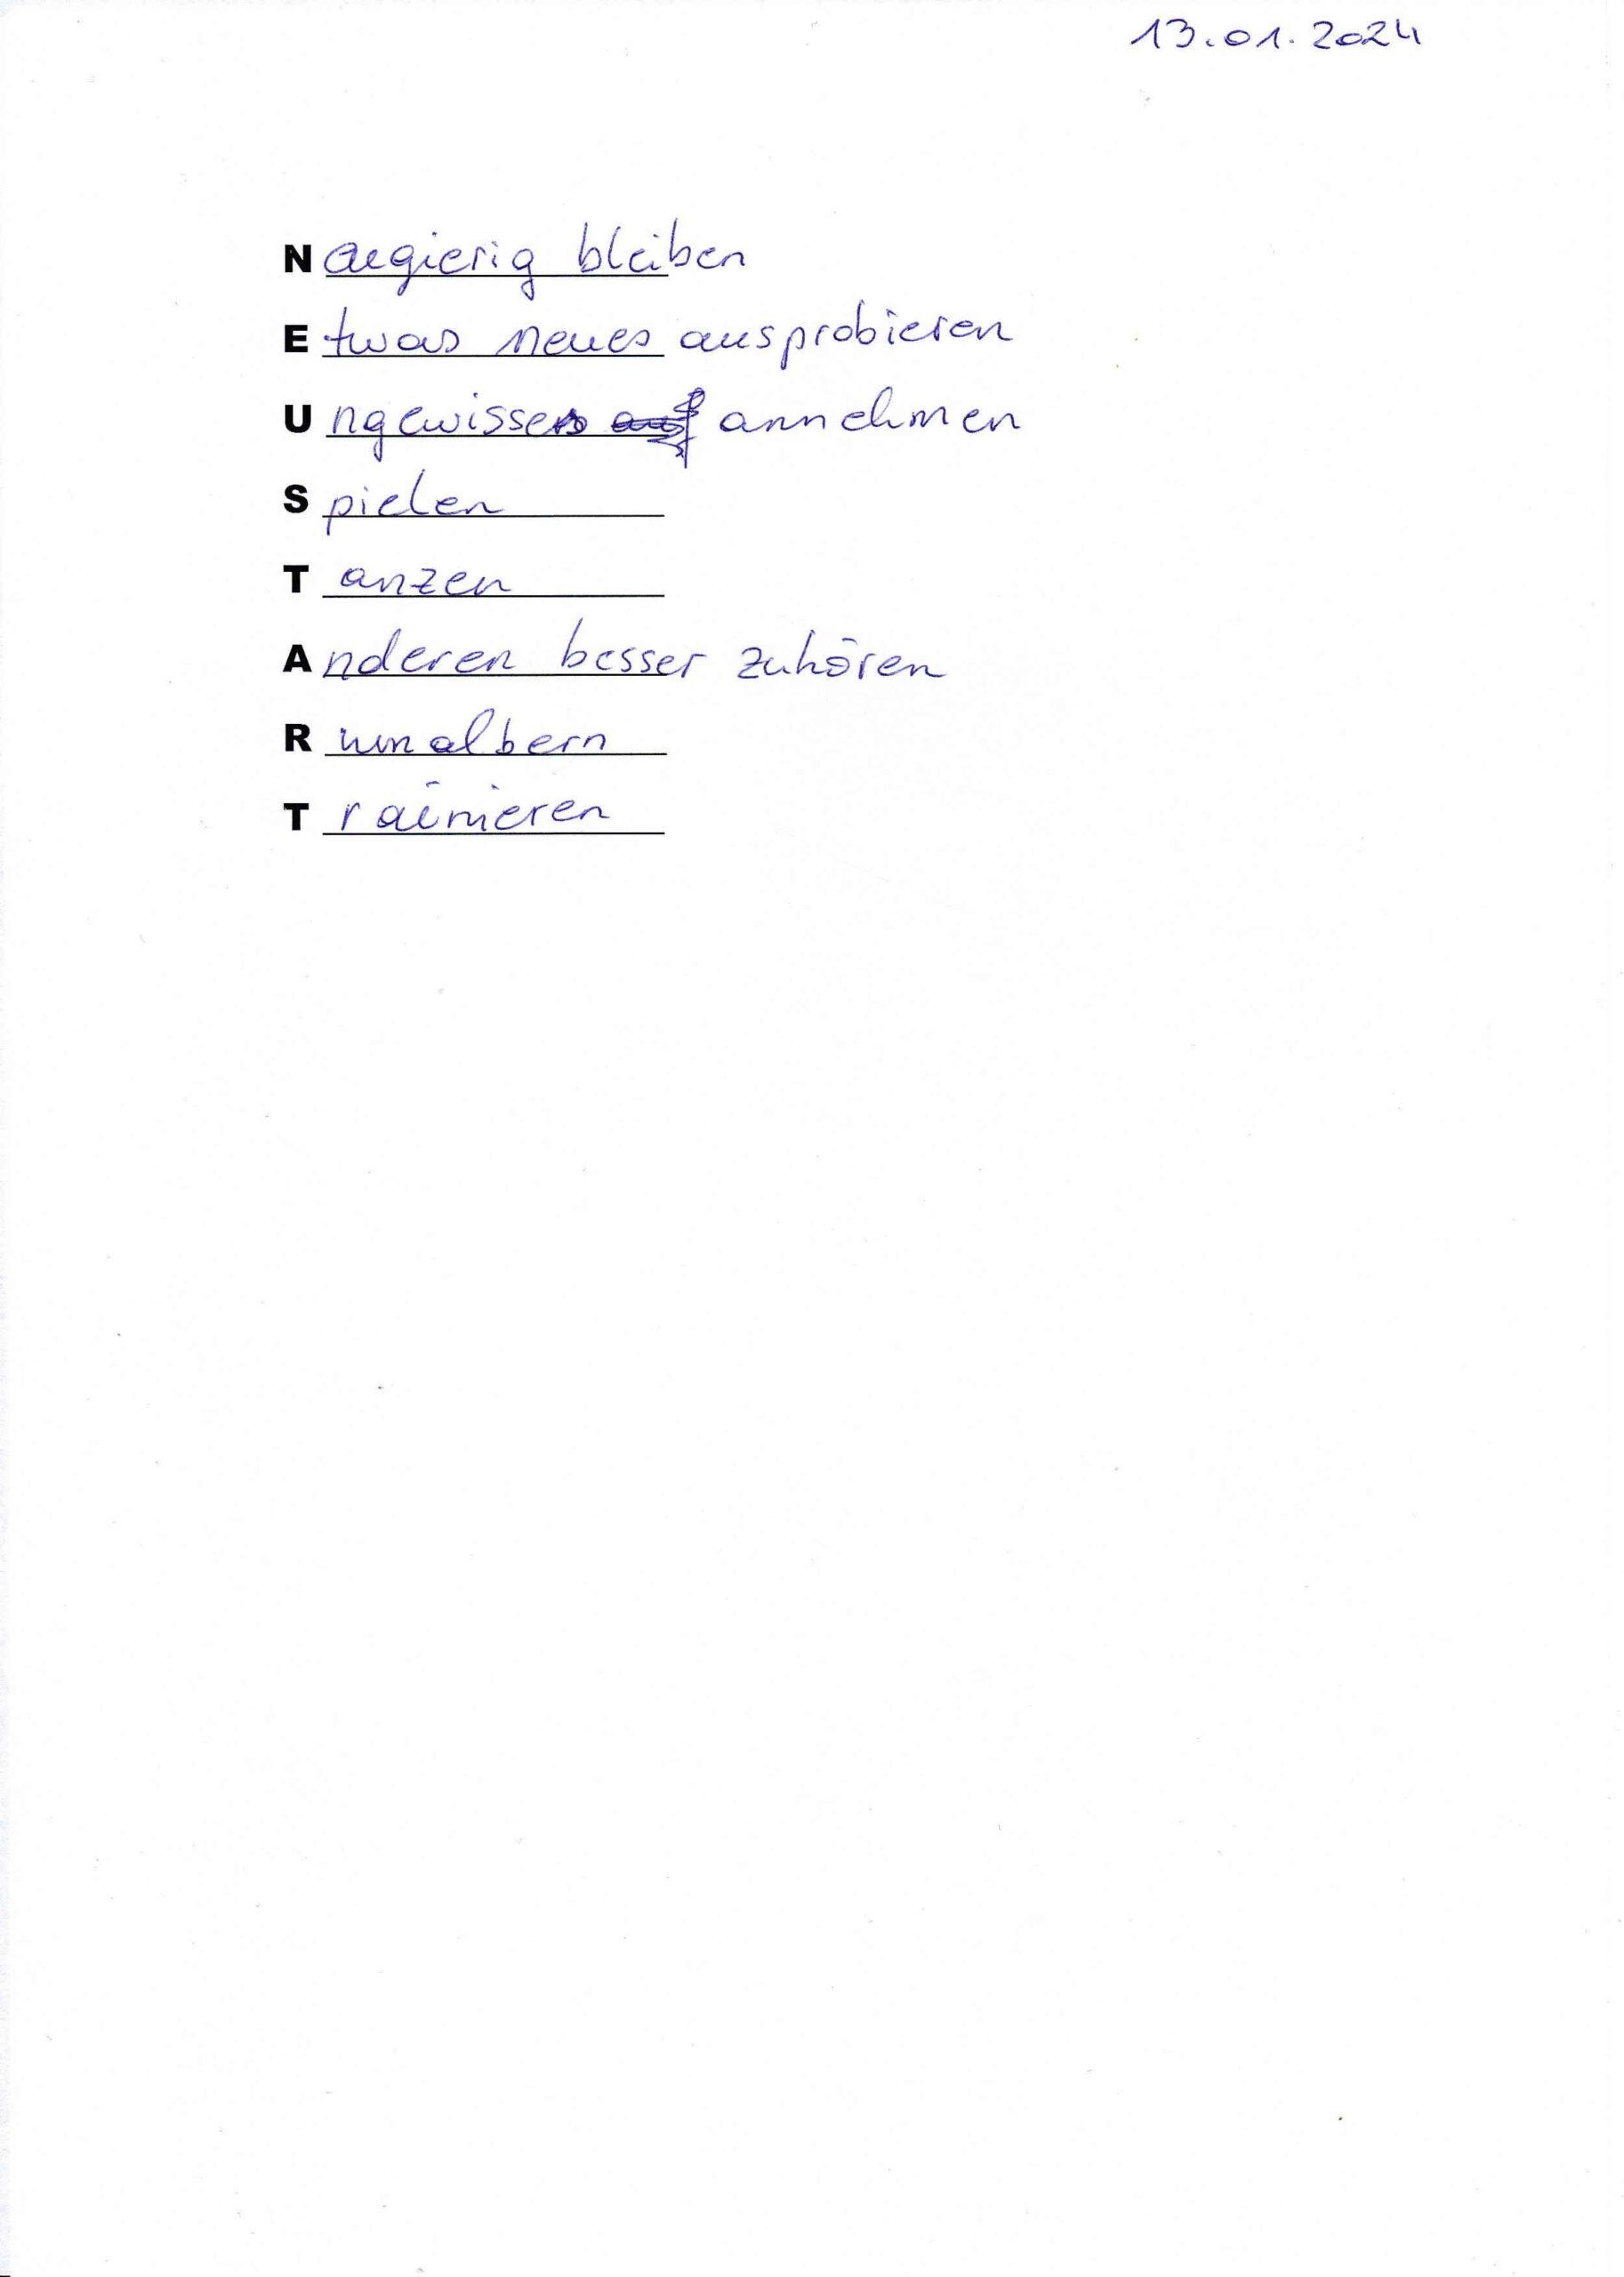 13.01.2024
Neugierig bleiben
Etwas neues ausprobieren
Ungewisses annehmen
Spielen
Tanzen
Anderen besser zuhören
Rumalbern
Trainieren